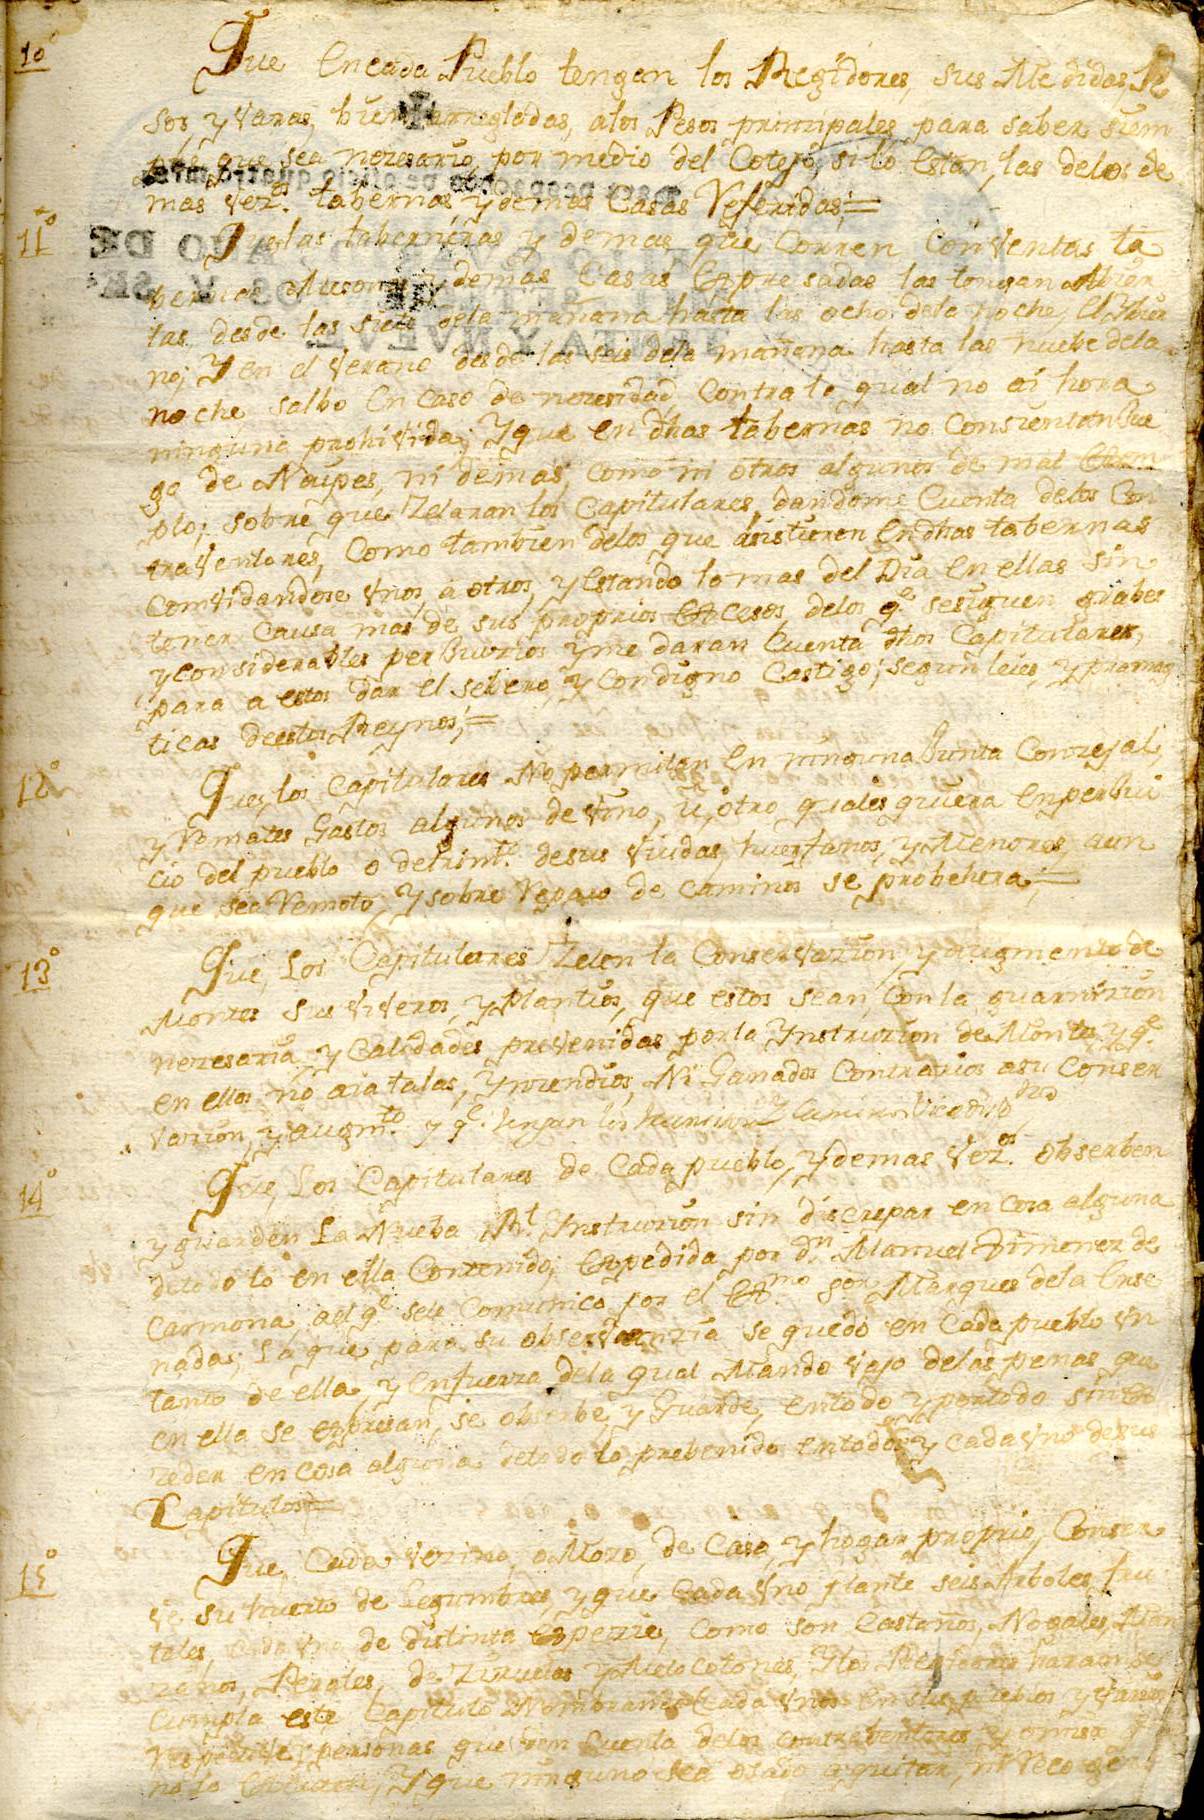 10º Que En cada Pueblo tengan los Regidores, sus Medidas Pe
sos y varas, bien arregladas, alos Pesos principales para saber siem
pre que sea nezesario, por medio del Cotejo, si lo Estan, las delos de
mas vez.ºˢ tabernas y demas Casas Referidas;=
11º Que las taberneras y demas que Corren con Ventas ta
bernas Mesones y demas Casas Expresadas las tengan Abier
tas, desde las siete dela mañana hasta las ocho dela noche, El Ibier
no; Y en el Verano desde las seis dela mañana hasta las nuebe dela
noche, salbo En caso de nezesidad Contra lo qual no ai hora
ninguna prohivida; Y que en dhas tabernas no Consientan Jue
go de Naipes, ni demas, como ni otros algunos de mal Exem
plo; sobre que Zelaran los Capitulares, dandome Cuenta delos Con
traventores, Como tambien delos que asistieren En dhas tabernas
Comvidandose Vnos, a otros, y Estando lo mas del Dia En ellas sin
tener Causa mas de sus proprios Excesos, delos q.ᵉ se siguen grabes
y considerables perjuizios y me daran Cuenta dhos Capitulares,
para a estos dar el sebero, y Condigno Castigo; segun leies, y pramag
ticas destos Reynos;=
12º Que, los Capitulares No permitan En ninguna Junta Conzejal,
y Remates Gastos algunos de Vino, u, otro, quales quiera En perjui
cio del pueblo o detrim.ᵗᵒ de sus Viudas, huerfanos, y Menores, aun
que sea Remoto, Y sobre Reparo de Caminos se probehera;=
13º Que, Los Capitulares Zelen la Conservazion, y augmento de
Montes sus Viveros, y Plantios, que estos sean, Con la guarnizion
nezesaria, y Calidades prevenidas por la Ynstruzion de Montes y q.ᵉ
en ellos no aia talas, Ynzendios, Ni Ganados Contrarios asu Conser
vazion, y augm.ᵗᵒ y q.ᵉ tengan los
14º Que, Los Capitulares de Cada pueblo, y demas Vez.ºˢ obserben
y guarden La Nueba R.ˡ Ynstruzion sin discrepar en cosa alguna
de todo lo en ella Contenido; Expedida por d.ⁿ Manuel Ximenez de
Carmona ael q.ᵉ sele Comunico por el Ex.ᵐᵒ Sor Marques dela Ense
nadas; La que para su observanzia se quedo en Cada pueblo Vn
tanto de ella, y En fuerza dela qual Mando Vajo delas penas que
en ella se expresan, se obserbe, y Guarde, en todo y por todo sin Ex
zeder en cosa alguna de todo lo prebenido en todos y cada Vno de sus
Capitulos=
15º Que, Cada Vezino, o Mozo, de Casa, y hogar proprio, Conser
ve su huerto de Legumbres, y que Cada Vno plante seis Arboles, fru
tales, cada Vno de distinta Espezie, Como son Castaños, Nogales, Man
zanos, Perales, de Ziruelas y Melocotones, Y los Regidores haran se
Cumpla este Capitulo Nombrando Cada Vnos En sus pueblos y Varrios
respective personas que den Cuenta delos contrabentores y
no lo Y que ninguno sea osado a quitar, ni Recoger